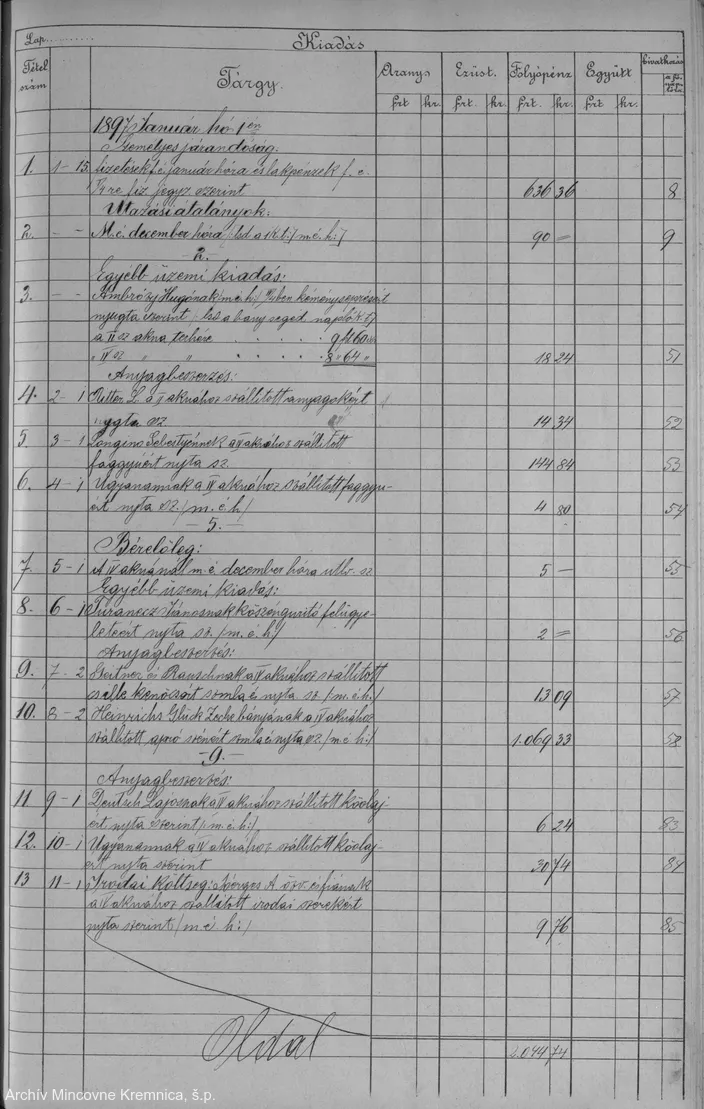 Lap
Kiadás
Tétel szám
Tárgy.
Aranys
Ezüst.
Folyópénz
Együtt
hivatkozás
frt kr. frt. kr. frt. kr. frt. kr.
1897 Január hó 1én
Személyes járandóság:
1. 1-15. fizetések f. é. január hóra és lakpénzek f. é.
fiz. jegyz. szerint 636 36 8
Utazási átalányok:
2. - - M. é. december hóra /m. é. h:/ 90 = 9
- 2. -
Egyébb üzemi kiadás:
3. - - Ambrózy Hugónak /m. é. h:/ kéményseprésért
nyugta szerint
a II sz akna részére 9 frt 60
" IV sz " " 8 " 64 " 18 24 51
Anyagbeszerzés:
4. 2-1 Ritter L. a V aknához szállított anyagokért
nyugta sz 14 34 52
5. 3-1 Longino Sebestyénnek a V aknához szállított
faggyúért nyta sz. 144 84 53
6. 4-1 Ugyanannak a IV aknához szállított faggyu-
ért nyta sz. /m. é. h:/ 4 80 54
- 5. -
Bérelőleg:
7. 5-1 A V aknánál m. é. december hóra utlv. sz. 5 - 55
Egyébb üzemi kiadás:
8. 6-1 Turanecz Jánosnak felügye-
letért nyta sz. /m. é. h:/ 2 = 56
Anyagbeszerzés:
9. 7-2 Steitner és Rauschnak a V aknához szállított
számla és nyta sz. /m. é. h:/ 13 09 57
10. 8-2 Heinrichs Glück Zeche bányának a V aknához
szállított apró szénért szmla és nyta sz. /m. é. h:/ 1.069 33 58
- 9. -
Anyagbeszerzés:
11 9-1 Deutsch Lajosnak a V aknához szállított kőolaj-
ért nyta szerint /m. é. h:/ 6 24 83
12. 10-1 Ugyanannak a V aknához szállított kőolaj-
ért nyta szerint 30 74 84
13 11-1 Irodai költség: özv. és fiának
a V aknához szállított irodai szerekért
nyta szerint /m. é. h:/ 9 76 85
Oldal 2.044 74
Archív Mincovne Kremnica, š.p.